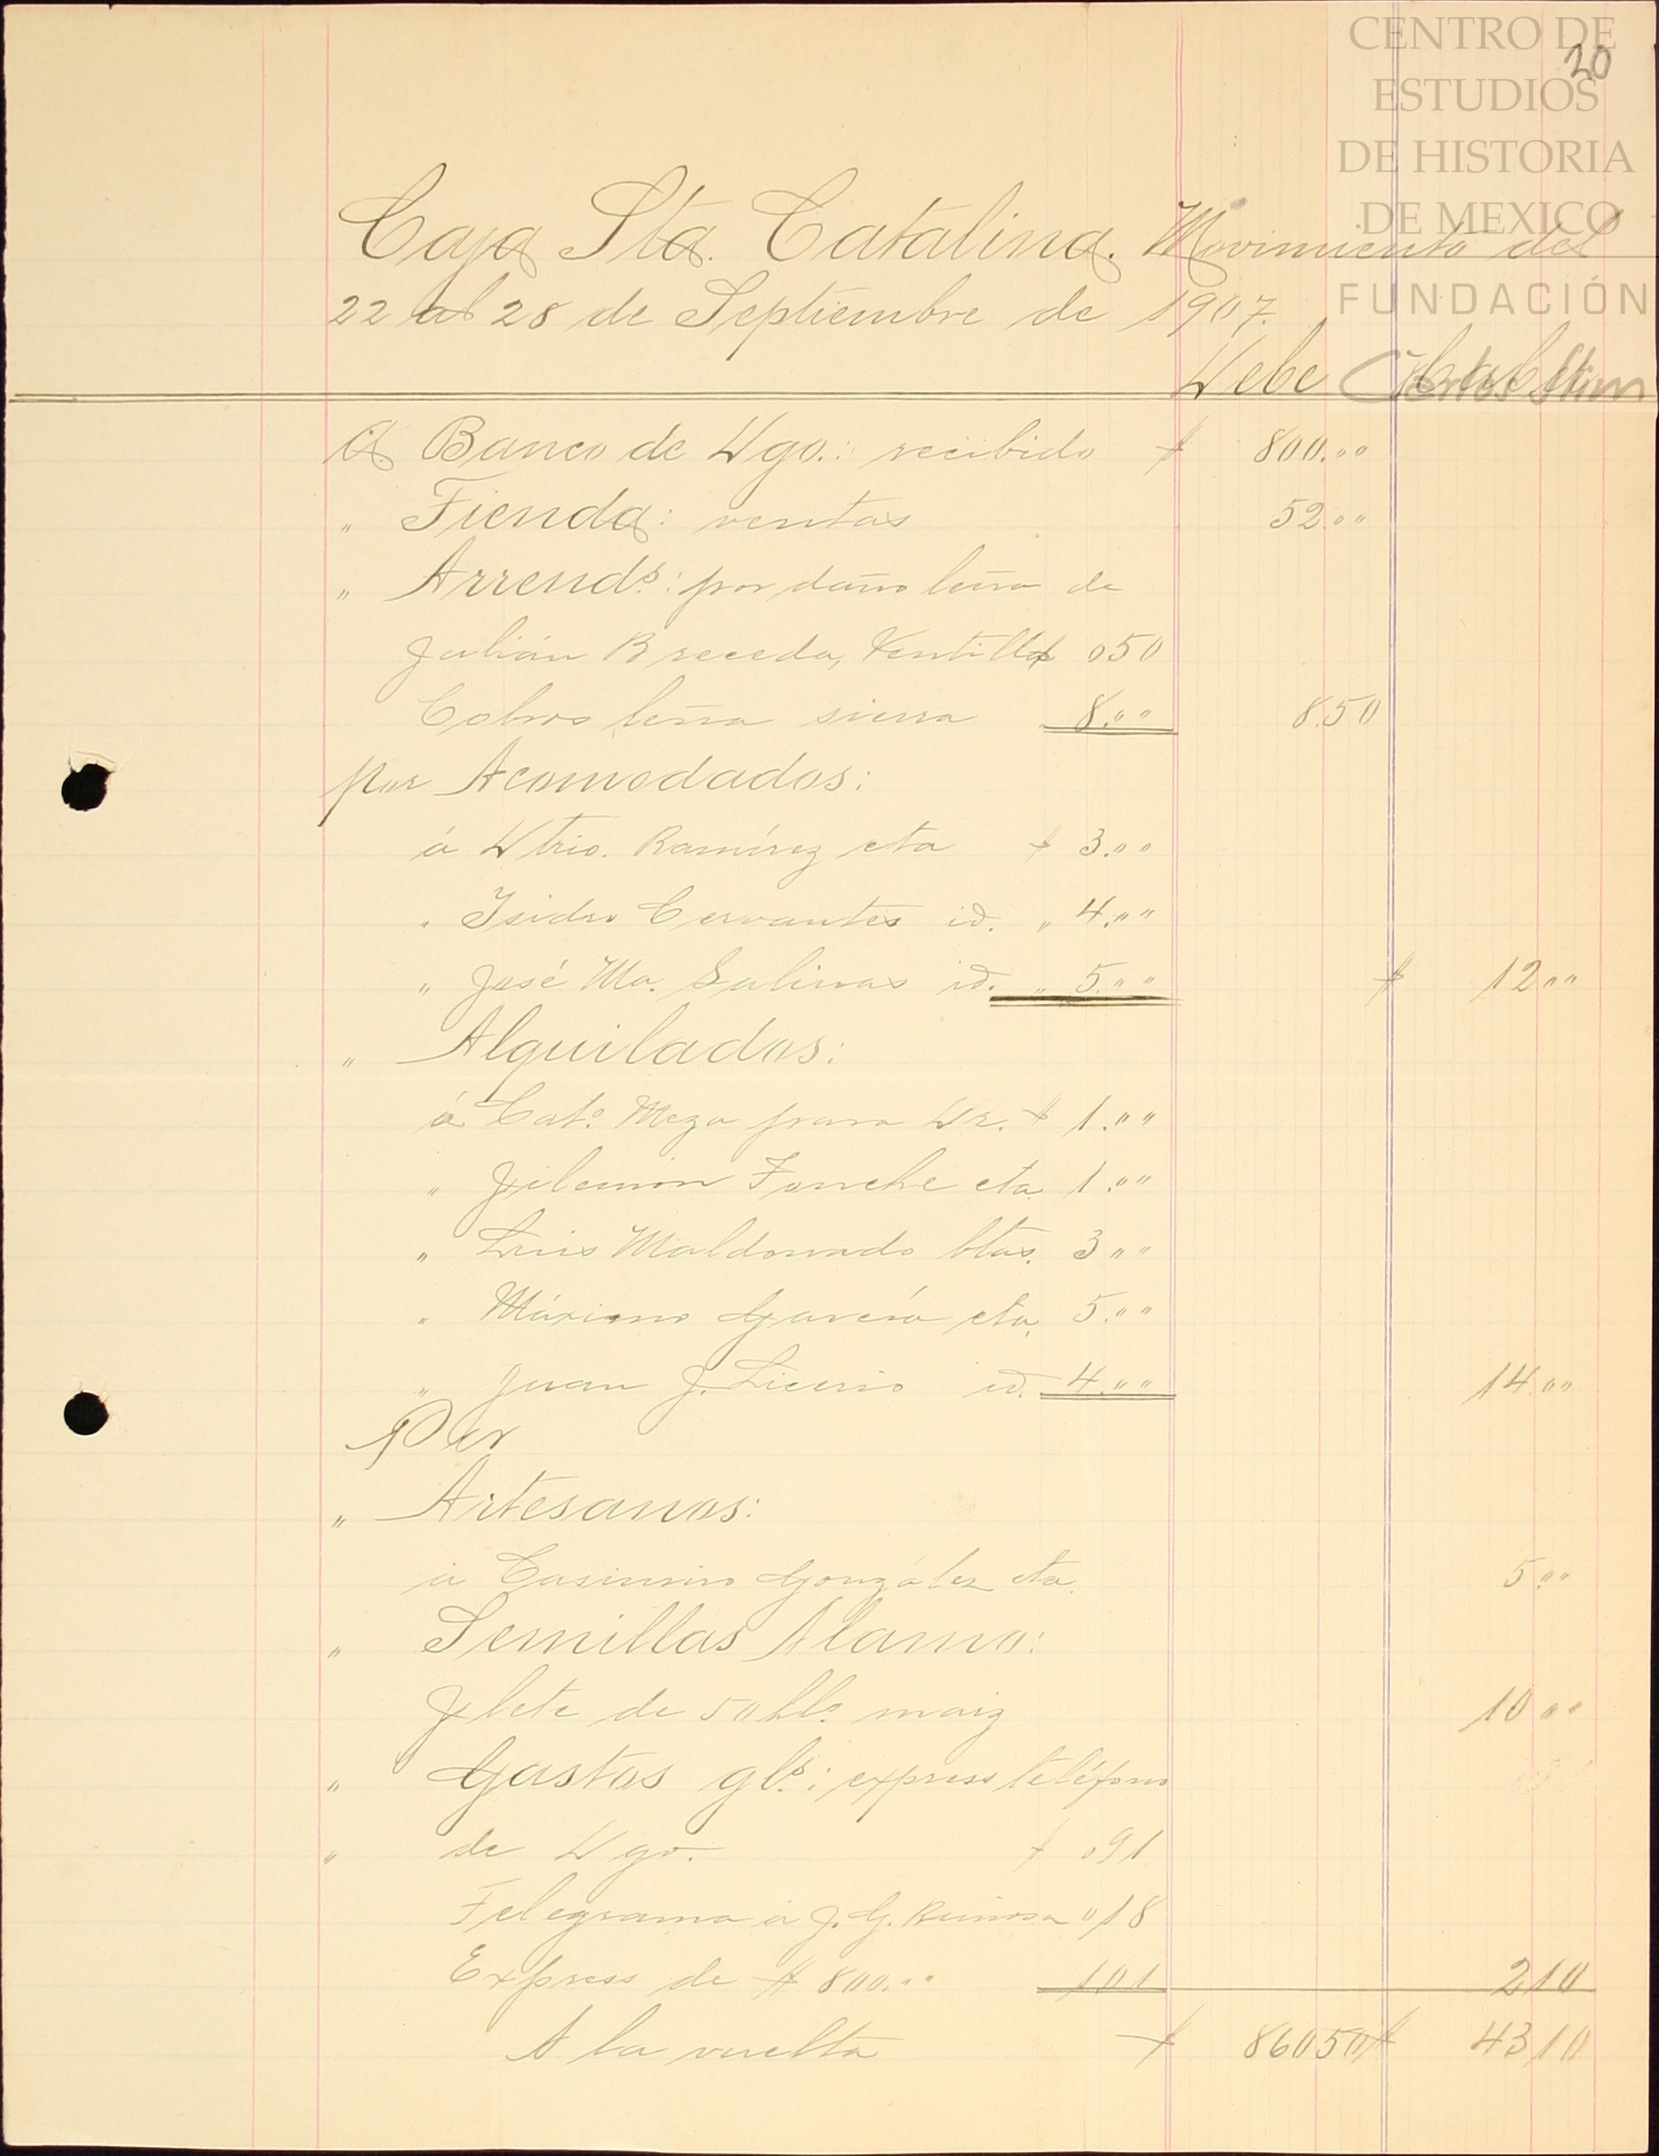 CENTRO DE
20
ESTUDIOS
DE HISTORIA
DE MEXICO
FUNDACIÓN
Carlos Slim
Caja Sta. Catalina. Movimiento del
22 al 28 de Septiembre de 1907.
Debe Haber
A Banco de Dgo.: recibido $ 800.""
" Tienda: ventas 52.""
" Arrends.: por daño leña de
Julián Breceda, Ventilla 050
Cobros leña sierra 8."" 8.50
por Acomodados:
á Dtrio. Ramírez cta $ 3.""
" Isidro Cervantes id. " 4.""
" José Ma. Salinas id. " 5."" $ 12""
" Alquilados:
á Cato. Meza para Dr. $ 1.""
" Filemón Fouche cta 1.""
" Luis Maldonado btas. 3""
" Máximo García cta. 5.""
" Juan J. Licerio id. 4."" 14.""
Por
" Artesanos:
á Casimiro González cta. 5.""
" Semillas Alamo:
flete de 50 hls. maiz 10""
" Gastos gls.: express teléfono
" de Dgo. $ 091
Telegrama á J. G. 018
Express de $ 800."" 101 210
A la vuelta $ 86050 $ 4310